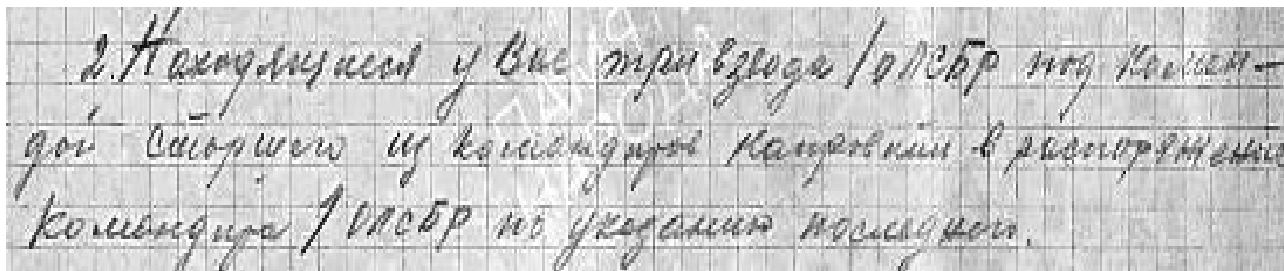 2. Находящиеся у Вас три взвода 1 ОЛСБр под коман-
дой старшего из командиров направить в распоряжение
командира 1 ОЛСБр по указанию последнего.